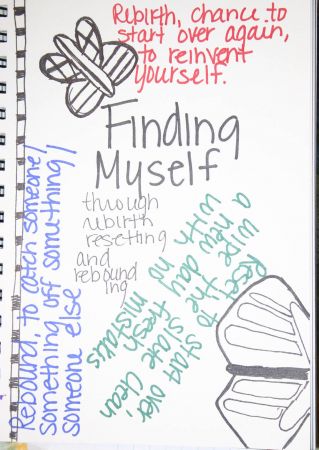 Rebirth, chance to
start over again,
to reinvent
yourself.
Finding
Myself
through
rebirth
resetting
and
rebound
ing
Rebound, to catch someone/
something off something/
someone else
Reset, to start over,
wipe the slate clean,
a new day fresh
with no mistakes